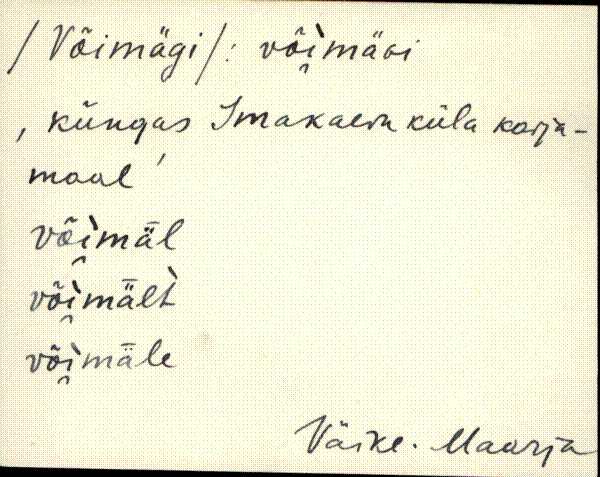 /Võimägi/: võì̯mäGi
, küngas Imakaevu küla karja-
maal ’
võì̯mǟl
võì̯mǟlt̀
võì̯mǟle
Väike-Maarja